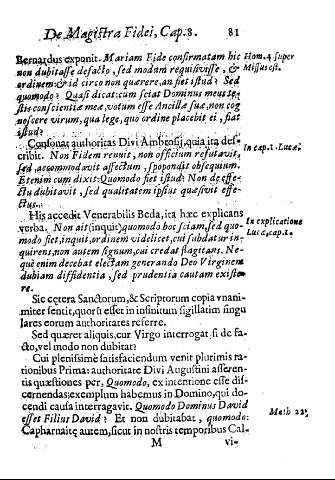 De Magistra Fidei, Cap. 8. 81
Bernardus exponit. Mariam Fide confirmatam hic
non dubitasse de facto, sed modum requisivisse, &
ordinem: & id circo non quærere, an fiet istud? Sed
quomodo? Quasi dicat: cum sciat Dominus meus te-
stis conscientiæ meæ, votum esse Ancillæ suæ, non cog
noscere virum, qua lege, quo ordine placebit ei, fiat
istud?
Hom. 4. super
Missus est.
Consonat authoritas Divi Ambrosij, quia ita des-
cribit. Non Fidem renuit, non officium refutavit,
sed accommodavit affectum, spopondit obsequium.
Etenim cum dixit: Quomodo fiet istud? Non de effe-
ctu dubitavit, sed qualitatem ipsius quæsivit effe-
ctus.
In cap. 1. Lucæ.
His accedit Venerabilis Beda, ita hæc explicans
verba. Non ait (inquit) quomodo hoc sciam, sed quo-
modo fiet, inquit, ordinem videlicet, cui subdatur in-
quirens, non autem signum, cui credat flagitans. Ne-
què enim decebat electam generando Deo Virginem
dubiam diffidentia, sed prudentia cautam existe-
re.
In explicatione
Luca, cap. 1.
Sic cętera Sanctorum, & Scriptorum copia vnani-
miter sentit, quorũ esset in infinitum sigillatim singu
lares eorum authoritates referre.
Sed quæret aliquis, cur Virgo interrogat, si de fa-
cto, vel modo non dubitat?
Cui plenissimè satisfaciendum venit plurimis ra-
tionibus Prima: authoritate Divi Augustini asseren-
tis quæstiones per, Quomodo, ex intentione esse dis-
cernendas; exemplum habemus in Domino, qui do-
cendi causa interragavit. Quomodo Dominus David
esset Filius David? Et non dubitabat, quomodo:
Capharnaitę autem, sicut in nostris temporibus Cal-
Math 22.
M vi-